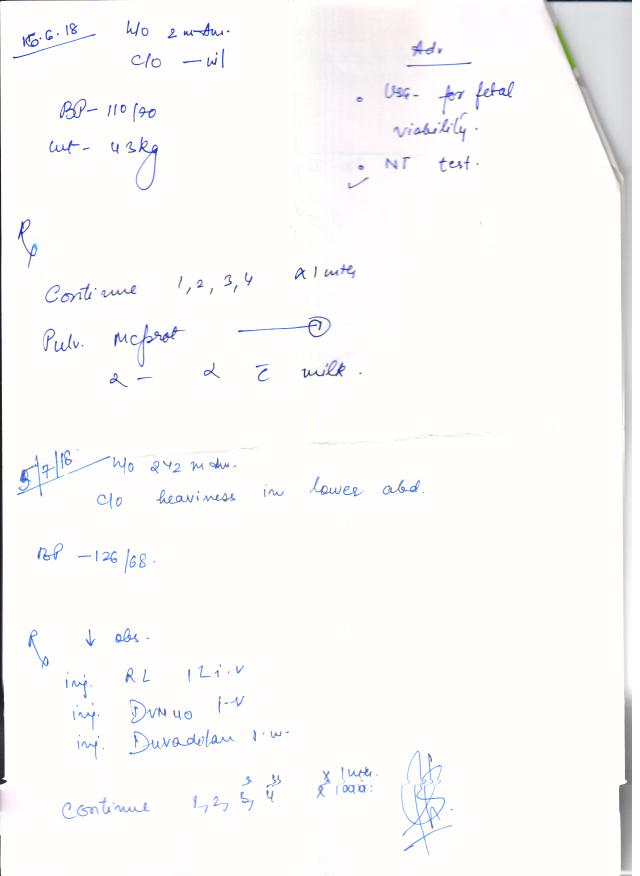 15.6.18 H/O 2 m Am.
C/O - nil
BP - 110/70
Wt - 43kg
Adv
• USG - for fetal
viability.
• NT test.
Rx
Continue 1, 2, 3, 4 x 1 mth
Pulv. Mcprot — 1
2 - 2 c̄ milk.
5/7/18 H/O 2 1/2 m Am.
C/O heaviness in lower abd.
BP - 126/68.
Rx ↓ obs.
inj. RL 1 L i.v
inj. DVN 40 I-V
inj. Duvadilan I.M.
Continue 1, 2, 3, 4